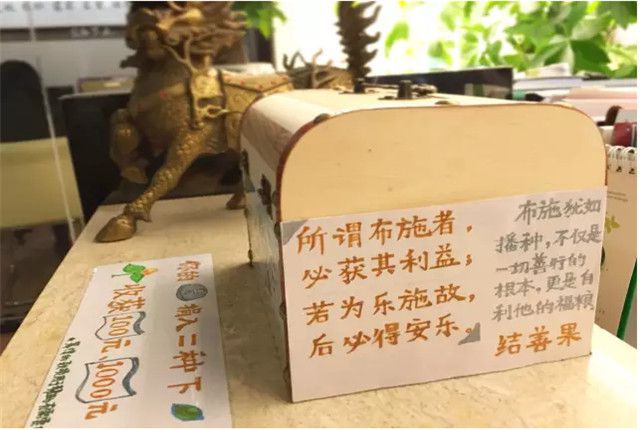 所谓布施者，
必获其利益；
若为乐施故，
后必得安乐。
布施犹如
播种，不仅是
一切善行的
根本，更是自
利他的福根
结善果
种下
收获100元 1000元